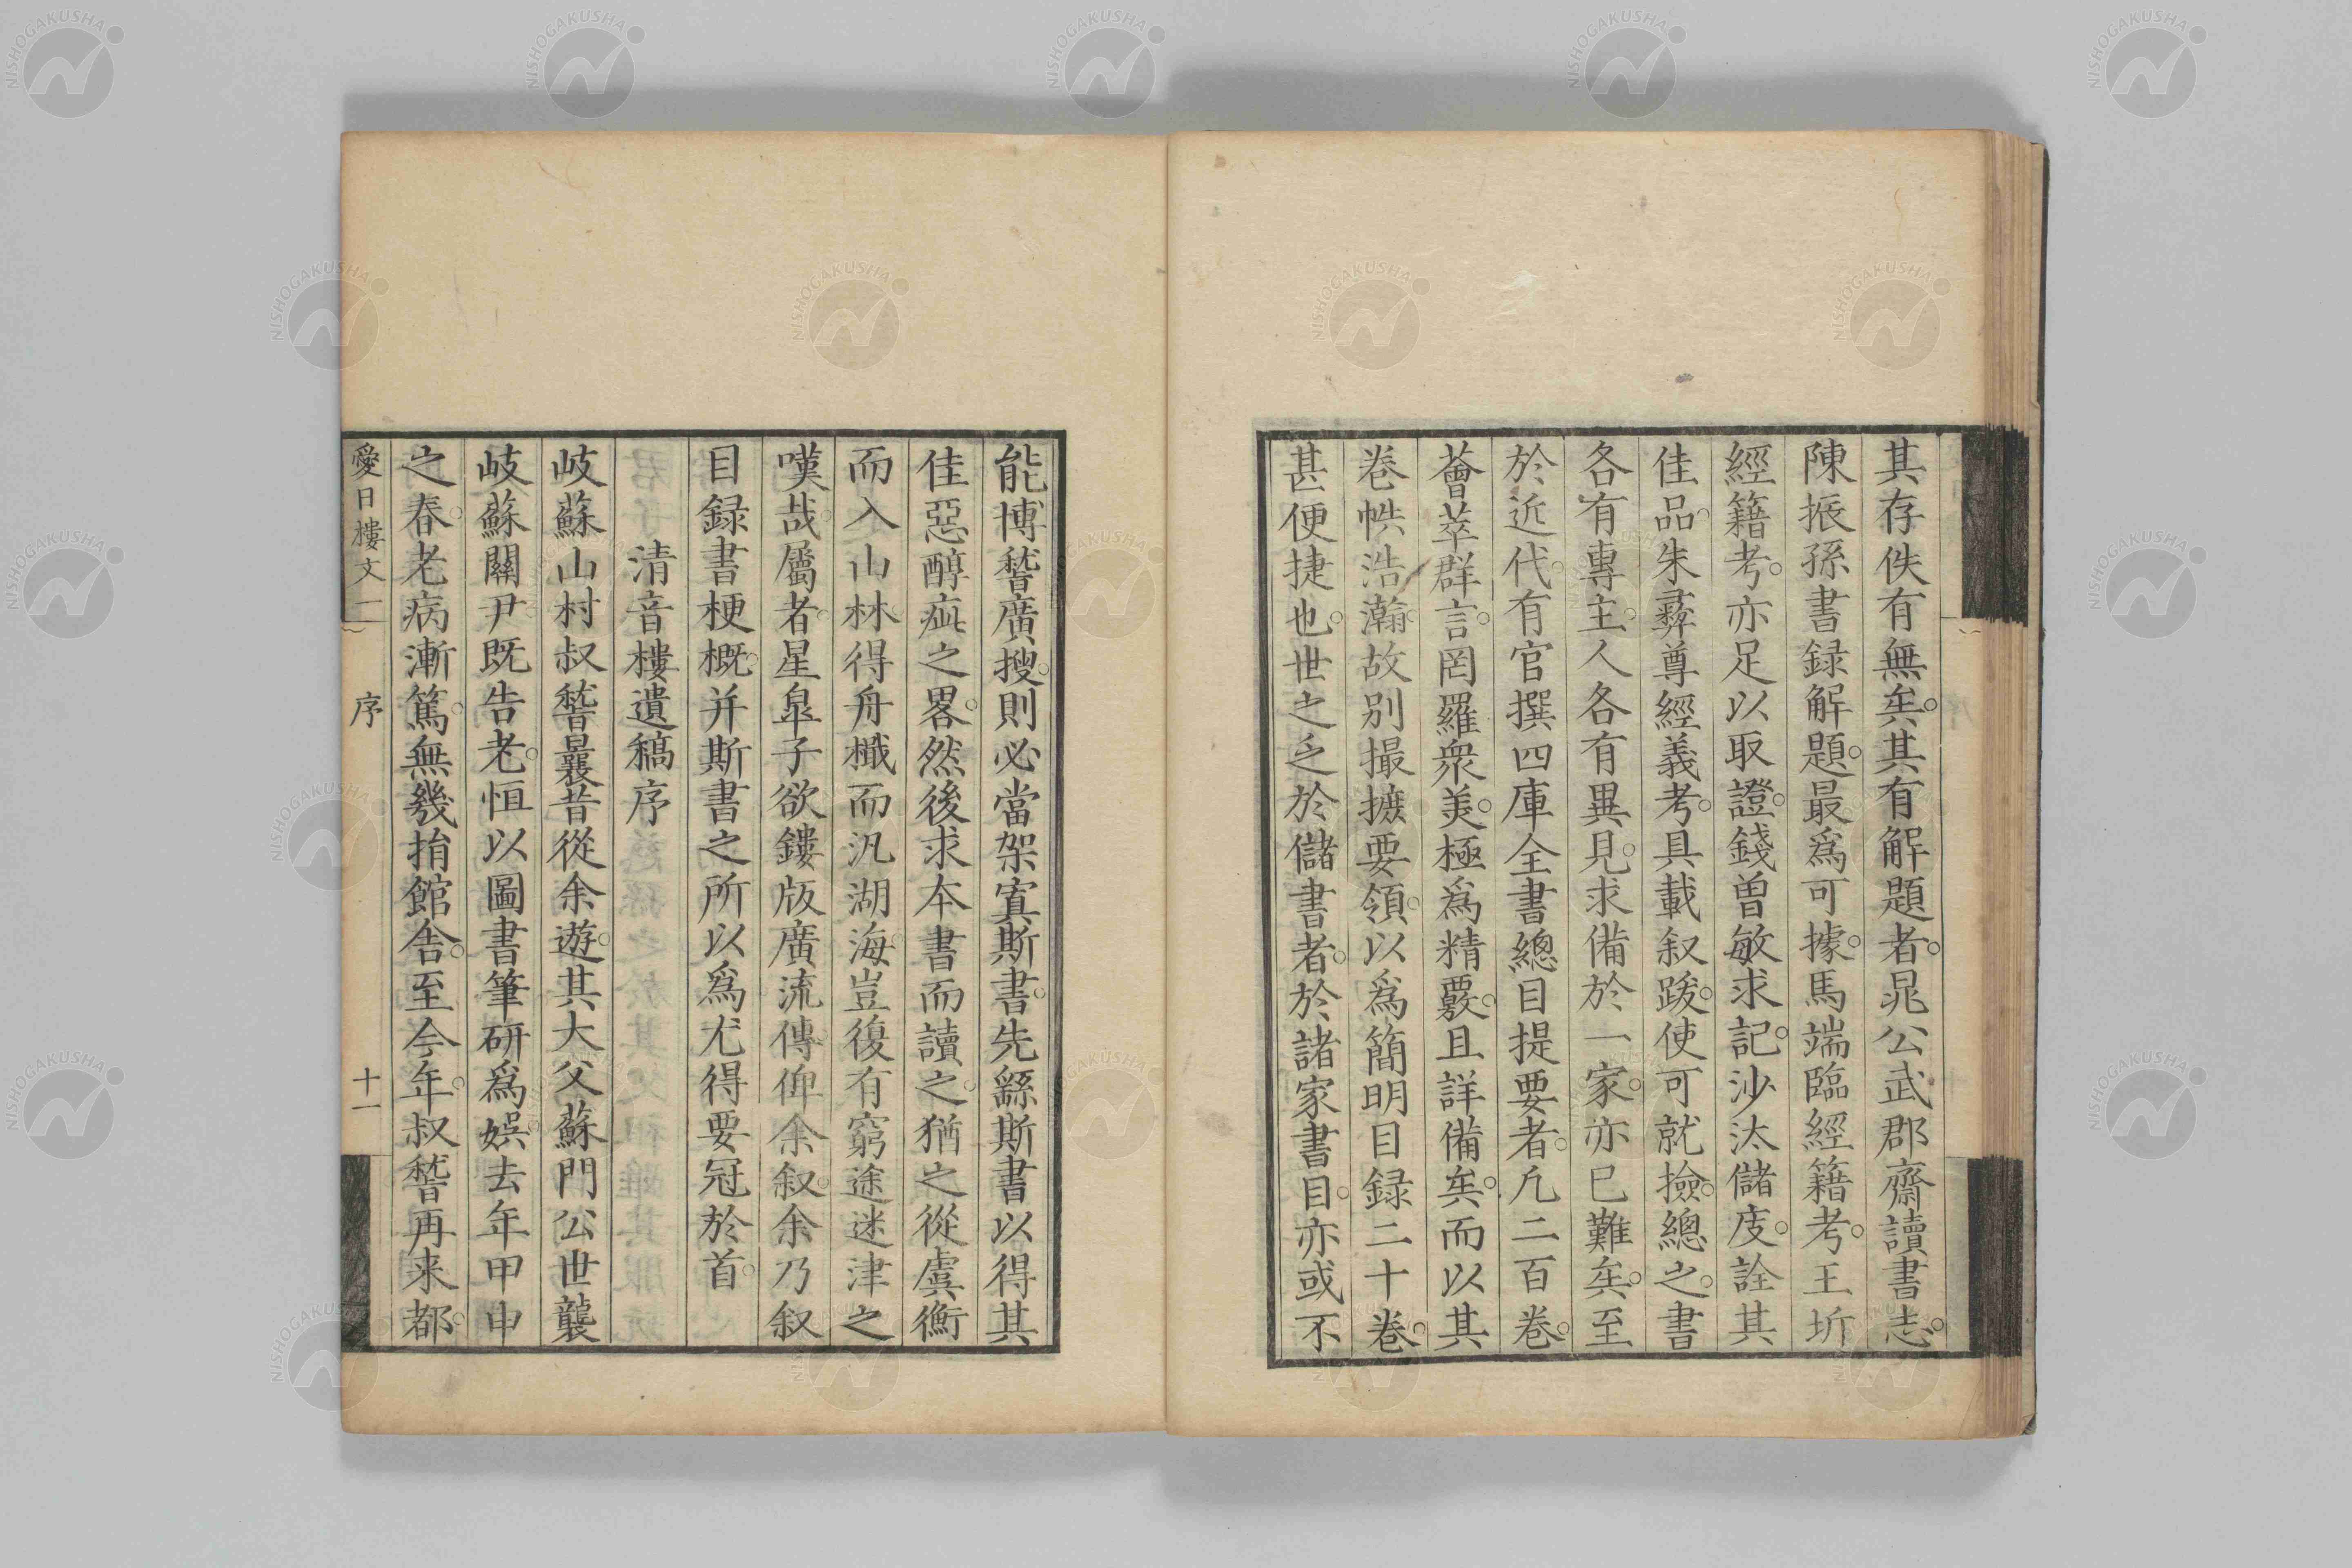 其存佚有無矣。其有解題者。晁公武郡齋讀書志。
陳振孫書録解題。最爲可據。馬端臨經籍考。王圻
經籍考。亦足以取證。錢曽敏求記。沙汰儲庋。詮其
佳品。朱彛尊經義考。具載叙跋。使可就撿。總之。書
各有專主。人各有異見。求備於一家。亦已難矣。至
於近代。有官撰四庫全書總目提要者。凡二百卷。
薈萃群言。罔羅衆美。極爲精覈。且詳備矣。而以其
卷帙浩瀚。故别撮摭要領。以爲簡明目録二十卷。
甚便捷也。世之乏於儲書者。於諸家書目。亦或不
能博稽廣搜。則必當架寘斯書。先繇斯書以得其
佳惡醇疵之畧。然後求本書而讀之。猶之從虞衡
而入山林。得舟檝而汎湖海。豈復有窮途迷津之
嘆哉。屬者。星皐子欲鏤版廣流傳。俾余叙。余乃叙
目録書梗概。并斯書之所以爲尤得要。冠於首。
清音樓遺稿序
岐蘇山村叔嵇曩昔從余遊。其大父蘇門公世襲
岐蘇關尹。既告老。恒以圖書筆研爲娯。去年甲申
之春。老病漸篤。無幾捐館舎。至今年。叔嵇再来都。
愛日樓文二 序 十一
NISHOGAKUSHA